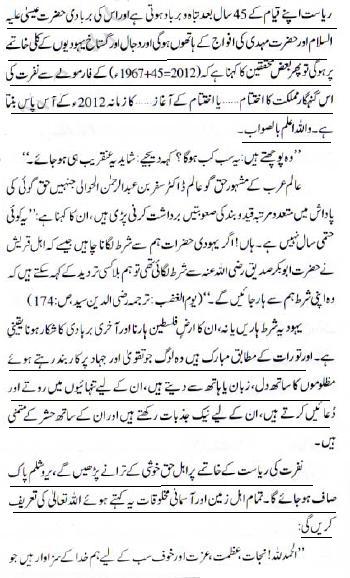 ریاست اپنے قیام کے 45 سال بعد تباہ و برباد ہوتی ہے اور اس کی بربادی حضرت عیسیٰ علیہ
السلام اور حضرت مہدی کی افواج کے ہاتھوں ہوگی اور دجال اور گستاخ یہودیوں کے کلی خاتمے
پر ہوگی تو پھر بعض محققین کا کہنا ہے کہ (2012=45+1967) کے فارمولے سے نفرت کی
اس گنہگار مملکت کا اختتام...... یا اختتام کے آغاز...... کا زمانہ 2012ء کے آس پاس بنتا
ہے۔ واللہ اعلم بالصواب۔
"وہ پوچھتے ہیں: یہ سب کب ہوگا؟ کہہ دیجیے: شاید یہ عنقریب ہی ہو جائے۔"
عالم عرب کے مشہور حق گو عالم ڈاکٹر سفر بن عبدالرحمٰن الحوالی جنہیں حق گوئی کی
پاداش میں متعدد مرتبہ قید و بند کی صعوبتیں برداشت کرنی پڑی ہیں، ان کا کہنا ہے: "یہ کوئی
حتمی سال نہیں ہے۔ ہاں! اگر یہودی حضرات ہم سے شرط لگانا چاہیں جیسے کہ اہل قریش
نے حضرت ابوبکر صدیق رضی اللہ عنہ سے شرط لگائی تھی تو ہم بلا کسی تردید کے کہہ سکتے ہیں کہ
وہ اپنی شرط ہم سے ہار جائیں گے۔" (یوم الغضب: ترجمہ رضی الدین سید، ص: 174)
یہود یہ شرط ہاریں یا نہ، ان کا ارضِ فلسطین ہارنا اور آخری بربادی کا شکار ہونا یقینی
ہے۔ اور تورات کے مطابق مبارک ہیں وہ لوگ جو تقویٰ اور جہاد پر کاربند رہتے ہوئے
مظلوموں کا ساتھ دل، زبان یا ہاتھ سے دیتے ہیں، ان کے لیے تنہائیوں میں روتے اور
دُعائیں کرتے ہیں، ان کے لیے نیک جذبات رکھتے ہیں اور ان کے ساتھ حشر کے متمنی
ہیں۔
نفرت کی ریاست کے خاتمے پر اہل حق خوشی کے ترانے پڑھیں گے، یروشلم پاک
صاف ہو جائے گا۔ تمام اہل زمین اور آسمانی مخلوقات یہ کہتے ہوئے اللہ تعالیٰ کی تعریف
کریں گی:
"الحمدللہ! نجات، عظمت، عزت اور خوف سب کے لیے ہم خدا کے سزاوار ہیں جو